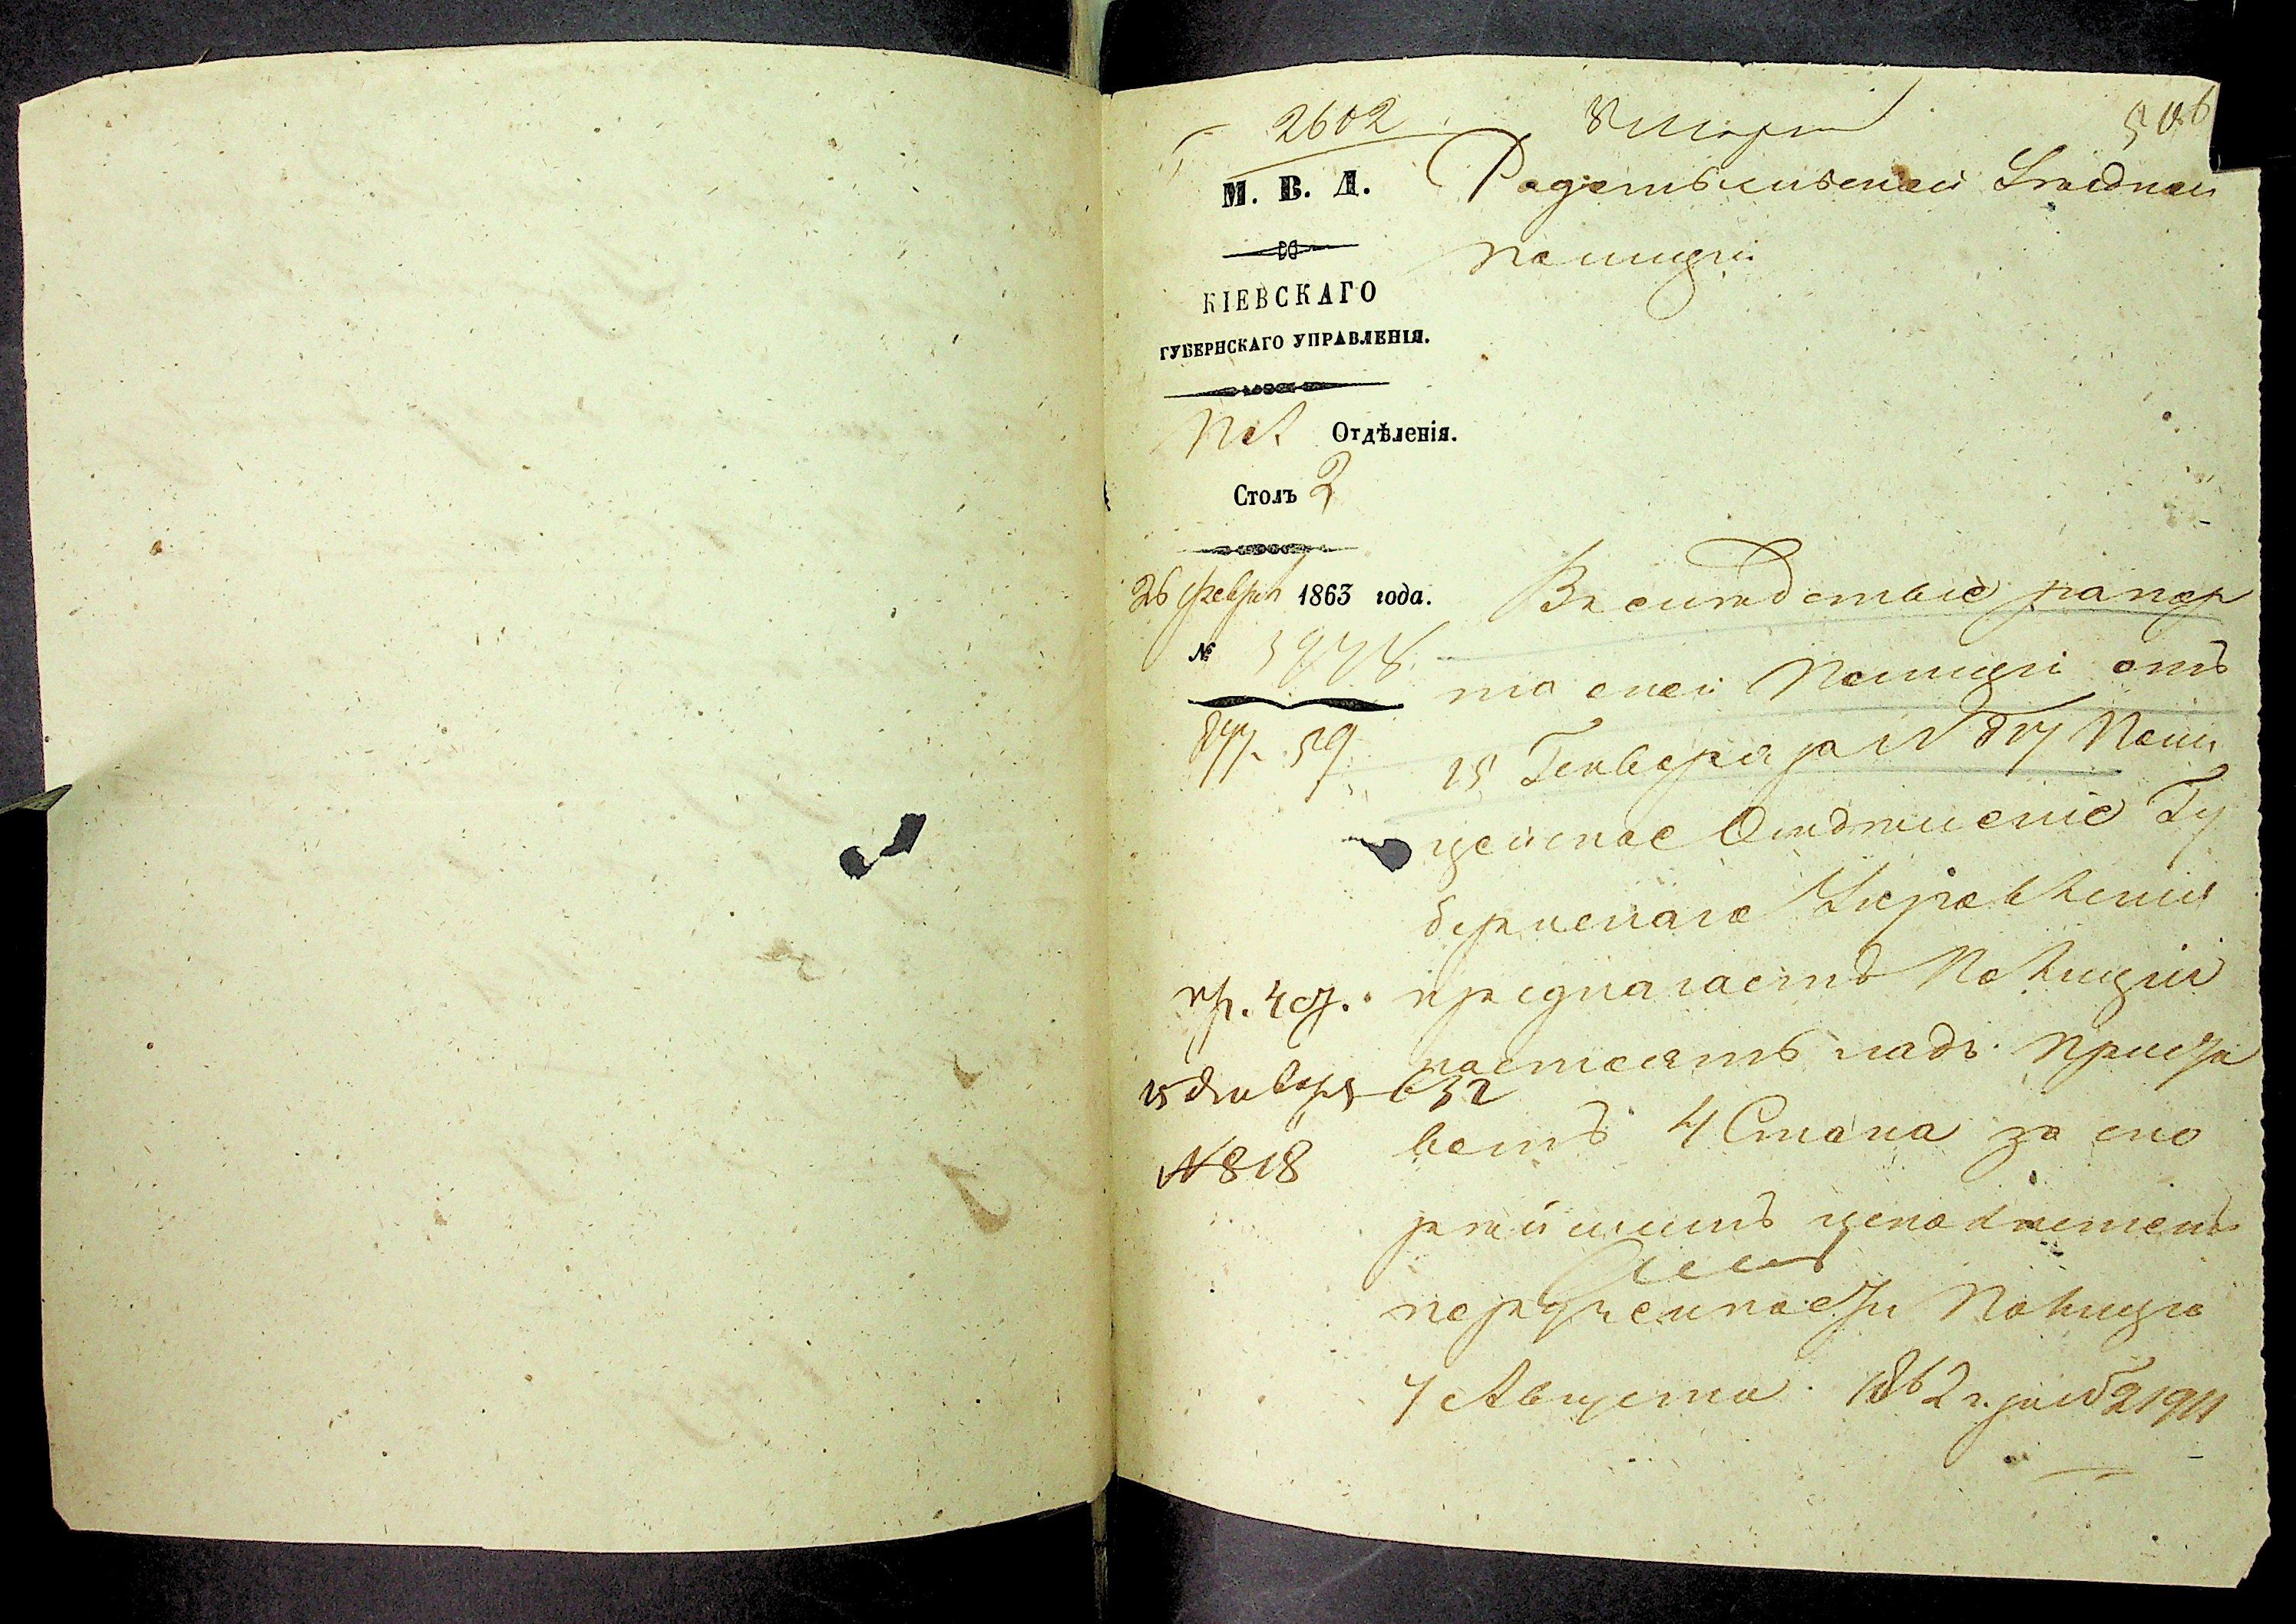 2602
8 Марта
506
М. В. Д.
КІЕВСКАГО
ГУБЕРНСКАГО УПРАВЛЕНІЯ.
Отдѣленія.
Столъ 2
26 Февра 1863 года.
№
Радомысльской Уѣздной
Полиціи
Вслѣдствіе рапор
та оной Полиціи отъ
15 Генваря за № 817 Поли
цейское Отдѣленіе Гу
бернскаго Управленія
предлагаетъ Полиціи
настоять надъ Приста
вомъ 4 Стана за ско
рѣйшимъ исполненіемъ
Полиціи
7 Августа 1862 г. за № 21911
15 Января 63 г
№ 818